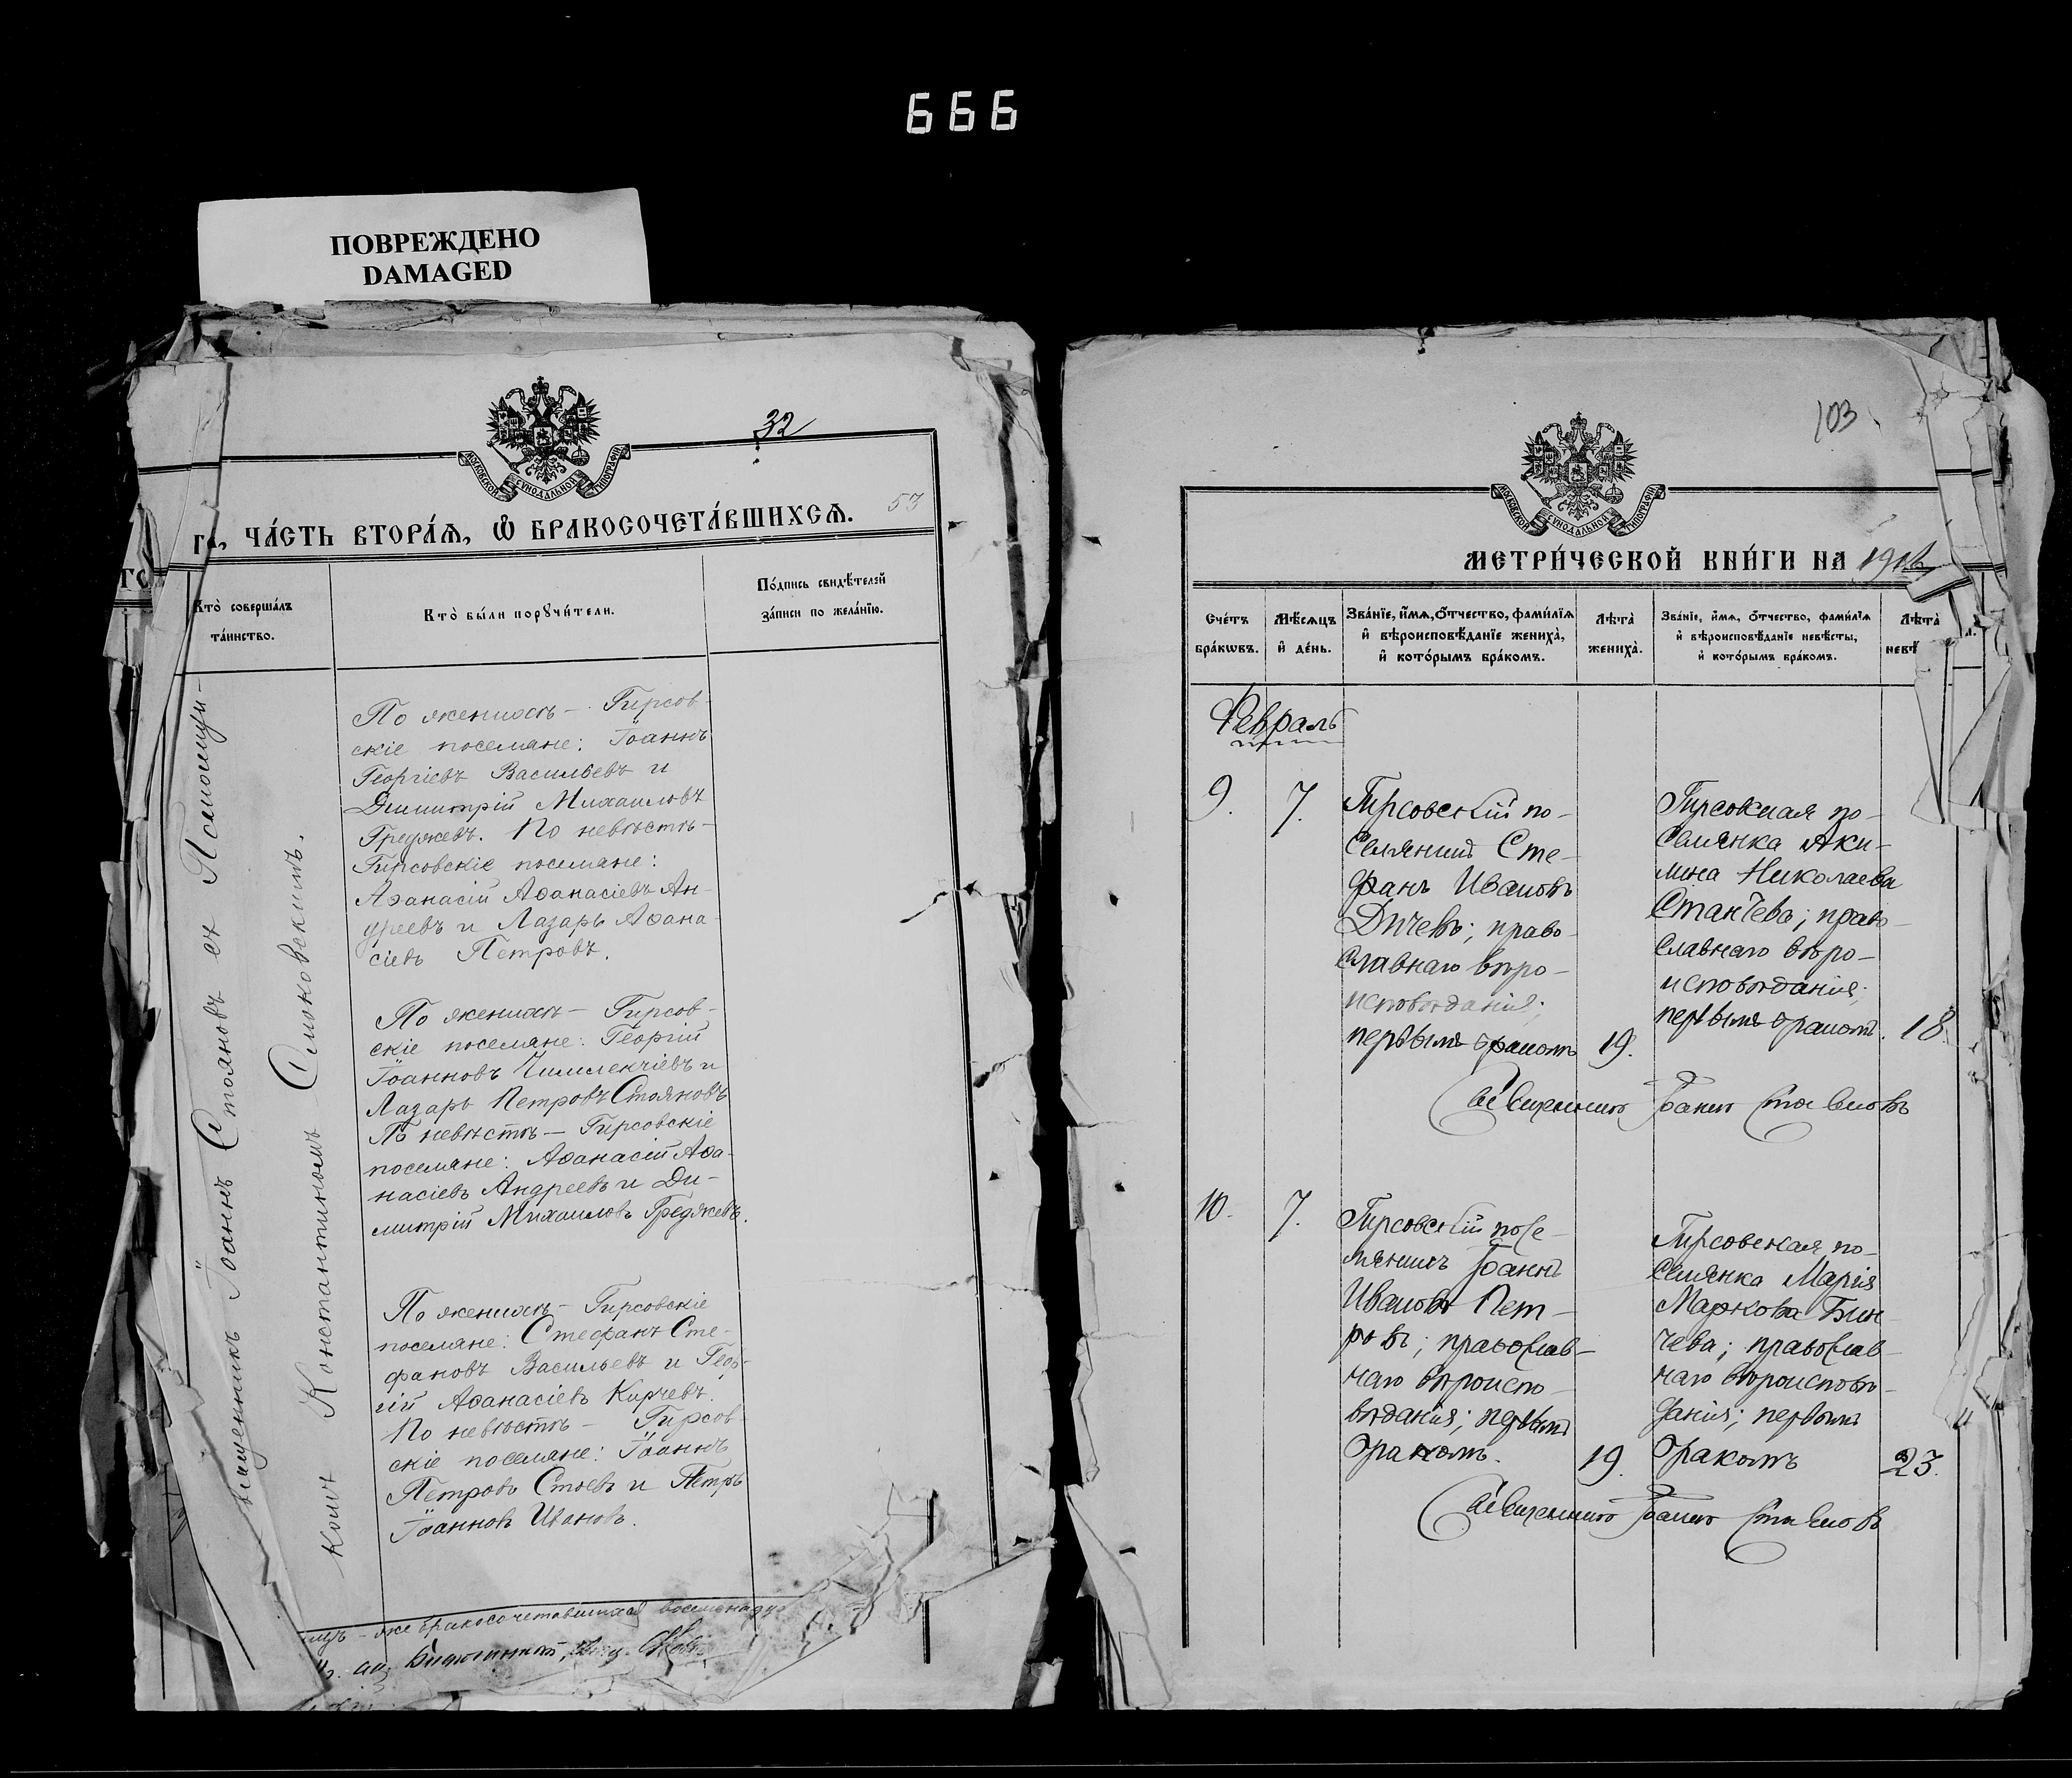 666
ПОВРЕЖДЕНО
DAMAGED
32
МОСКОВСКОЙ СѴНОДАЛЬНОЙ ТИПОГРАФІИ
53
ГѠ, ЧА́СТЬ ВТОРА́Я, Ѡ҆ БРАКОСОЧЕТА́ВШИХСЯ.
Кто̀ соверша́лъ
та́инство.
Кто̀ бы́ли порꙋчи́тели.
По́дпись свидѣ́телей
за́писи по жела́нїю.
Священникъ Іоаннъ Стояновъ съ Псаломщи-
комъ Константиномъ
По женихѣ – Гирсов-
скіе поселяне: Іоаннъ
Георгіевъ Васильевъ и
Димитрій Михаиловъ
Греджевъ. По невѣстѣ –
Гирсовскіе поселяне:
Аѳанасій Аѳанасіевъ Ан-
дреевъ и Лазарь Аѳана-
сіевъ Петровъ.
По женихѣ – Гирсов-
скіе поселяне: Георгій
Іоанновъ и
Лазарь Петровъ Стояновъ
По невѣстѣ – Гирсовскіе
поселяне: Аѳанасій Аѳа-
насіевъ Андреевъ и Ди-
митрій Михаиловъ Греджевъ.
По женихѣ – Гирсовскіе
поселяне: Стефанъ Сте-
фановъ Васильевъ и Геор-
гій Аѳанасіевъ Кирчевъ.
По невѣстѣ – Гирсов-
скіе поселяне: Іоаннъ
Петровъ Стоевъ и Петръ
Іоанновъ Ивановъ.
-же бракосочетавшихся
103
МОСКОВСКОЙ СѴНОДАЛЬНОЙ ТИПОГРАФІИ
МЕТРИ́ЧЕСКОЙ КНИ́ГИ НА
Сче́тъ
бра́кѡвъ.
Мѣ́сяцъ
и҆ де́нь.
Зва́нїе, и҆́мя, ѻ҆́тчество, фами́лїя
и҆ вѣроисповѣ́данїе жениха̀,
и҆ кото́рымъ бра́комъ.
Лѣ́та̀
жениха̀.
Зва́нїе, и҆́мя, ѻ҆́тчество, фами́лїя
и҆ вѣроисповѣ́данїе невѣ́сты,
и҆ кото́рымъ бра́комъ.
Лѣ́та̀
невѣ́
Февраль
9.
7.
Гирсовскій по-
селянинъ Сте-
фанъ Ивановъ
Дичевъ; право-
славнаго вѣро-
исповѣданія;
первымъ бракомъ
19.
Гирсовская по-
селянка Аки-
лина Николаева
Станчева; право-
славнаго вѣро-
исповѣданія;
первымъ бракомъ.
18.
Священникъ Іоаннъ Стояновъ
10.
7.
Гирсовскій посе-
лянинъ Іоаннъ
Ивановъ Пет-
ровъ; православ-
наго вѣроиспо-
вѣданія; первымъ
бракомъ.
19.
Гирсовская по-
селянка Марія
Маркова Бин-
чева; православ-
наго вѣроисповѣ-
данія; первымъ
бракомъ
23.
Священникъ Іоаннъ Стояновъ